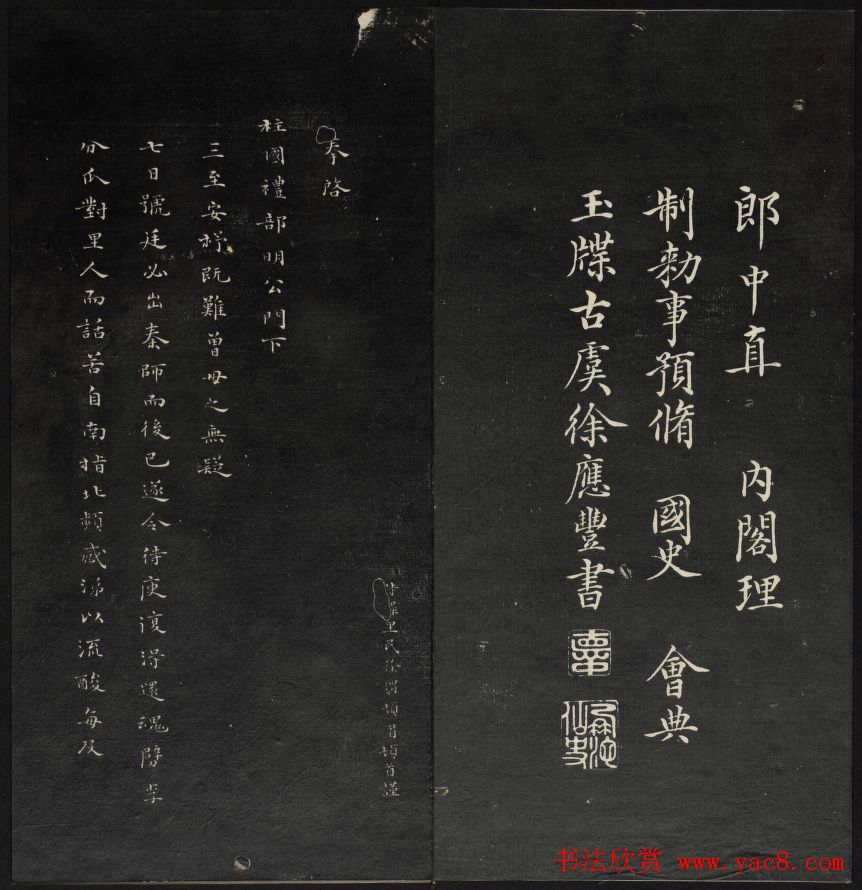 郎中直 內閣理
制勑事預脩 國史 會典
玉牒古虞徐應豐書
里民徐渭頓首頓首謹
奉啓
柱國禮部明公門下
三至安 既難曾母之無疑
七日號廷必出秦師而後已遂令待庾復得還魂 李
分瓜對里人而話苦自南指北頻感涕以流酸每及
书法欣赏 www.yac8.com